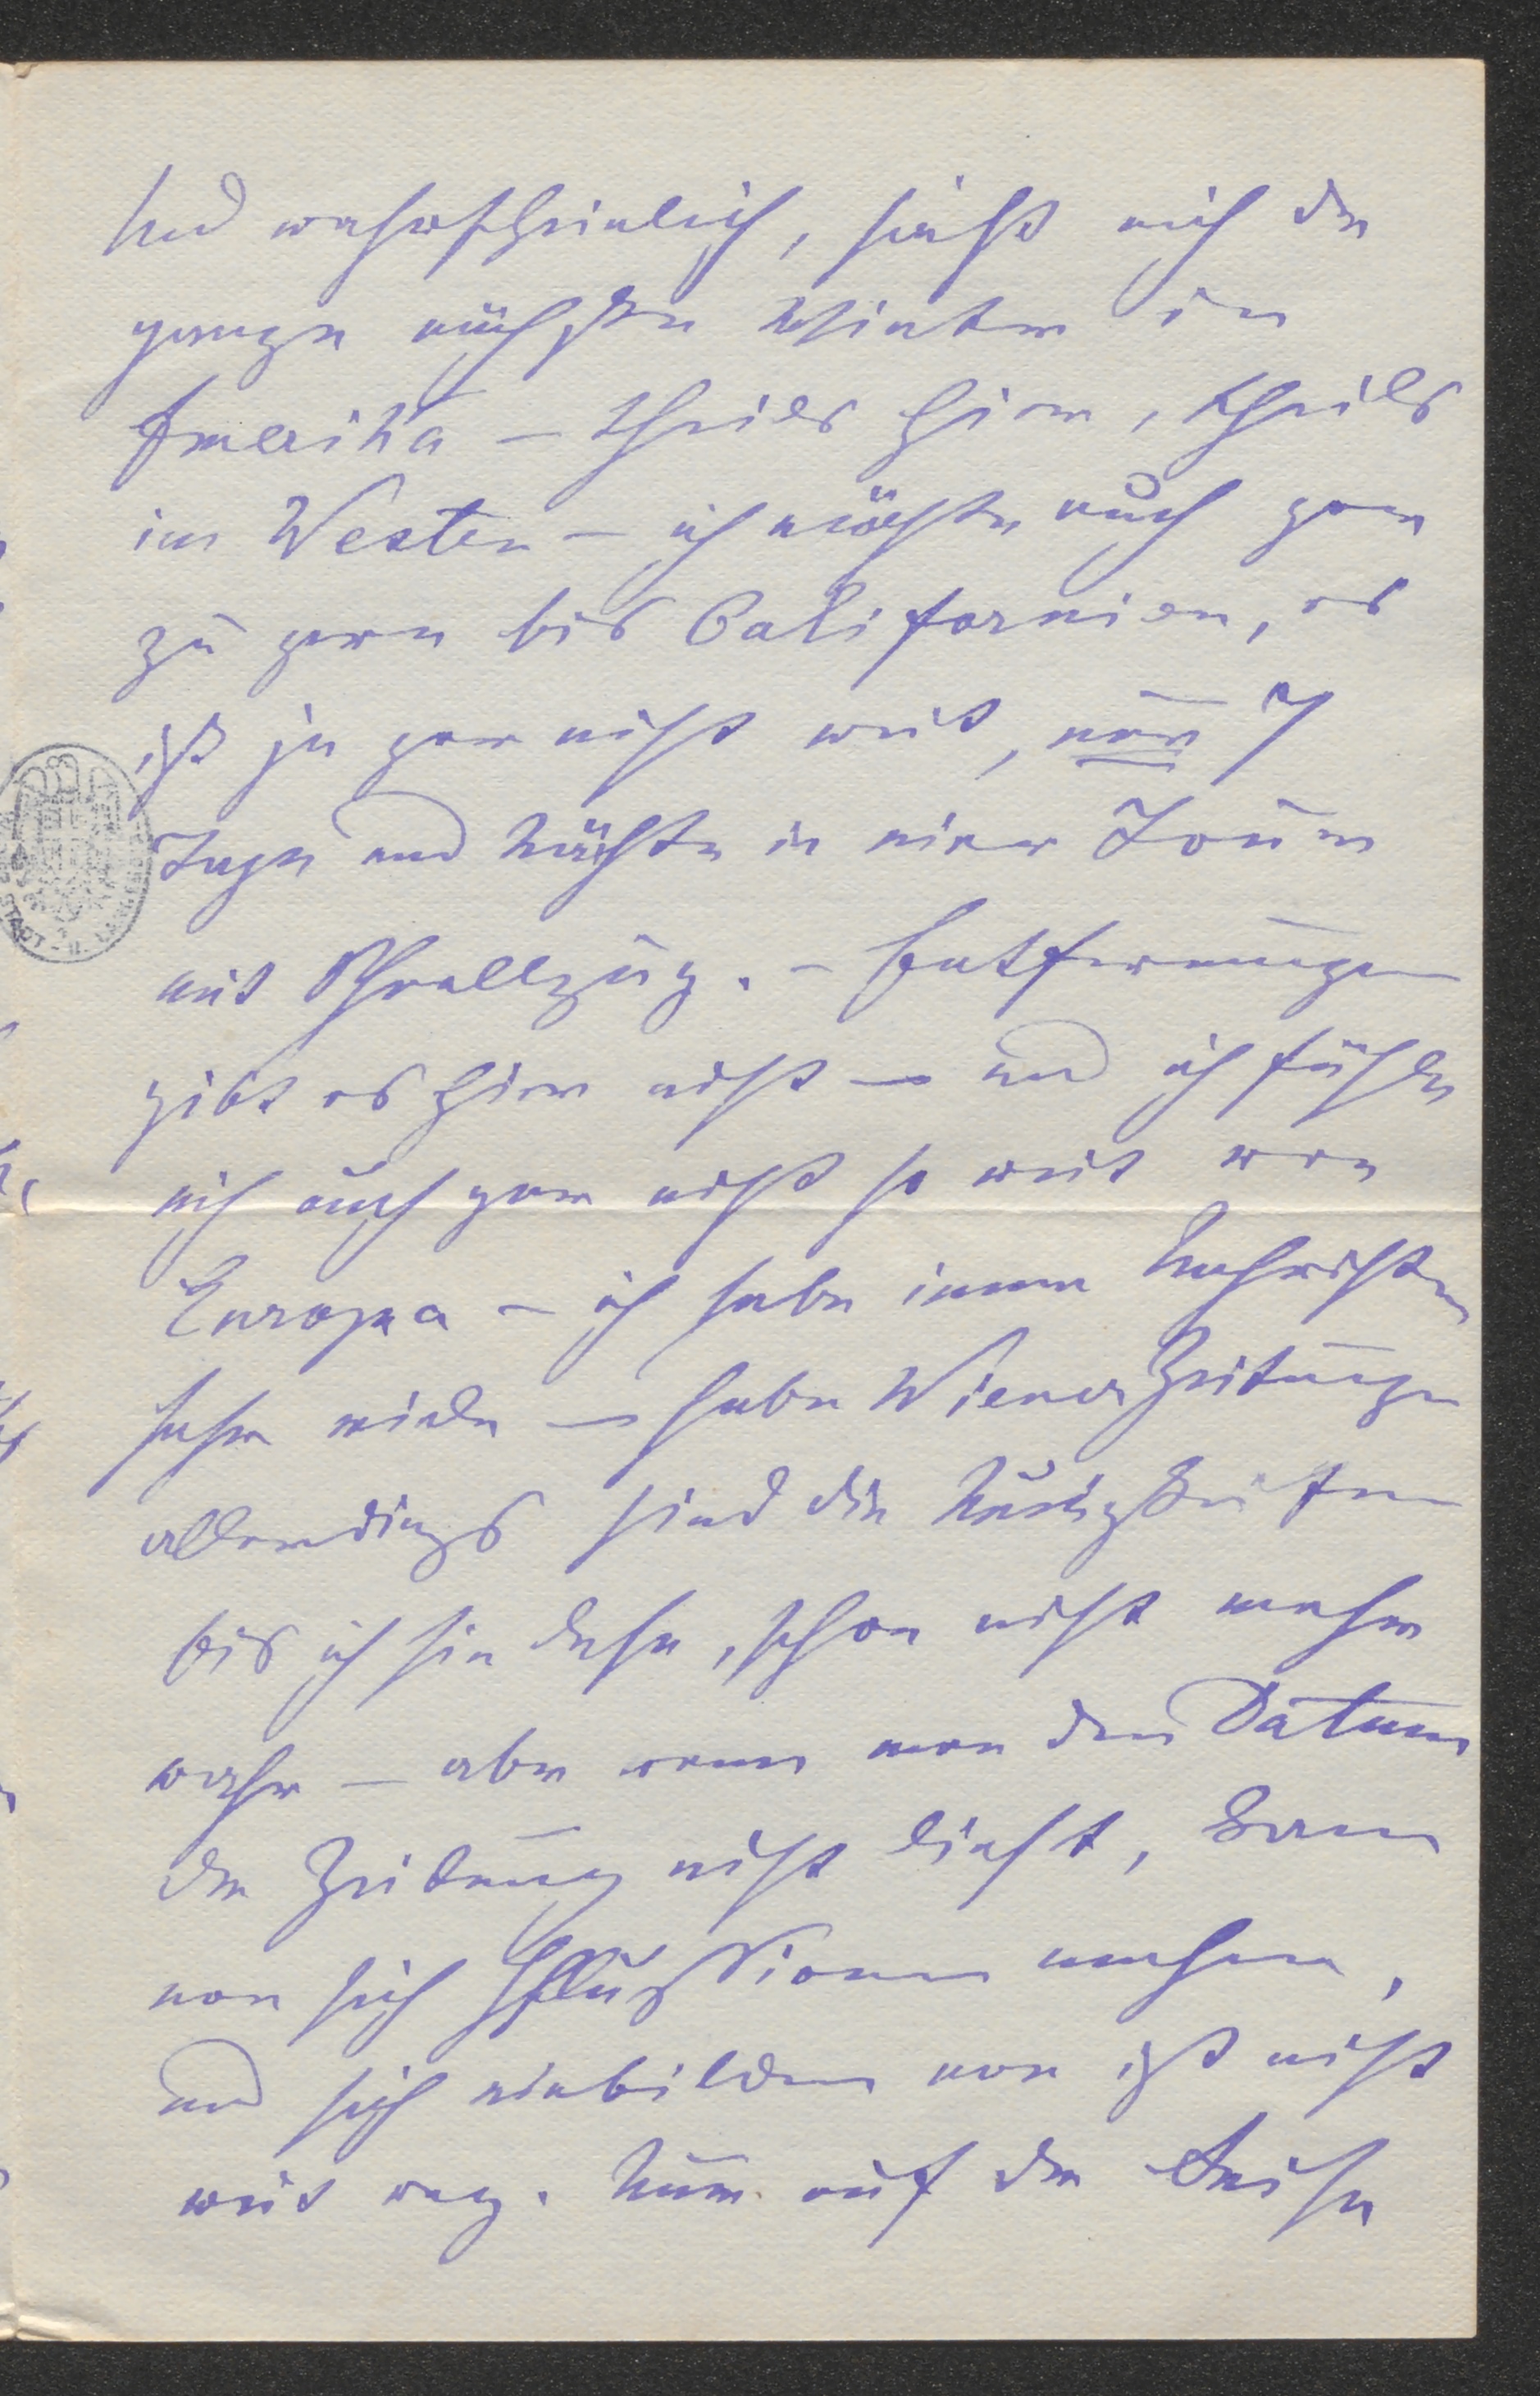 Und wahrscheinlich, sieht mich der
ganze nächste Winter in
Amerika – theils hier, theils
im Westen – ich möchte auch gar
zu gern bis Californien, es
ist ja gar nicht weit, nur 7
Tage und Nächte in einer Tour
mit Schnellzug. – Entfernungen
gibt es hier nicht – und ich fühle
mich auch gar nicht so weit von
Europa – ich habe immer Nachrichten
sehr viele – habe Wiener Zeitungen
allerdings sind die Neuigkeiten
bis ich sie lese, schon nicht mehr
wahr – aber wenn man den Datum
der Zeitung nicht liest, kann
man sich Illussionen machen,
und sich einbilden man ist nicht
weit weg. Nur auf der Reise